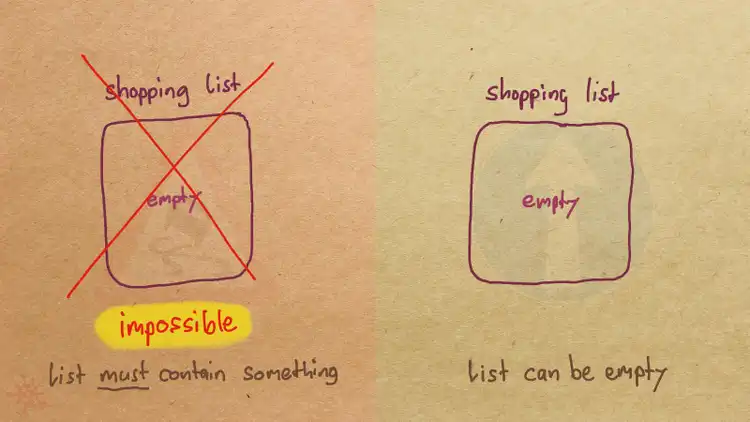 shopping list
empty
impossible
list must contain something
shopping list
empty
list can be empty